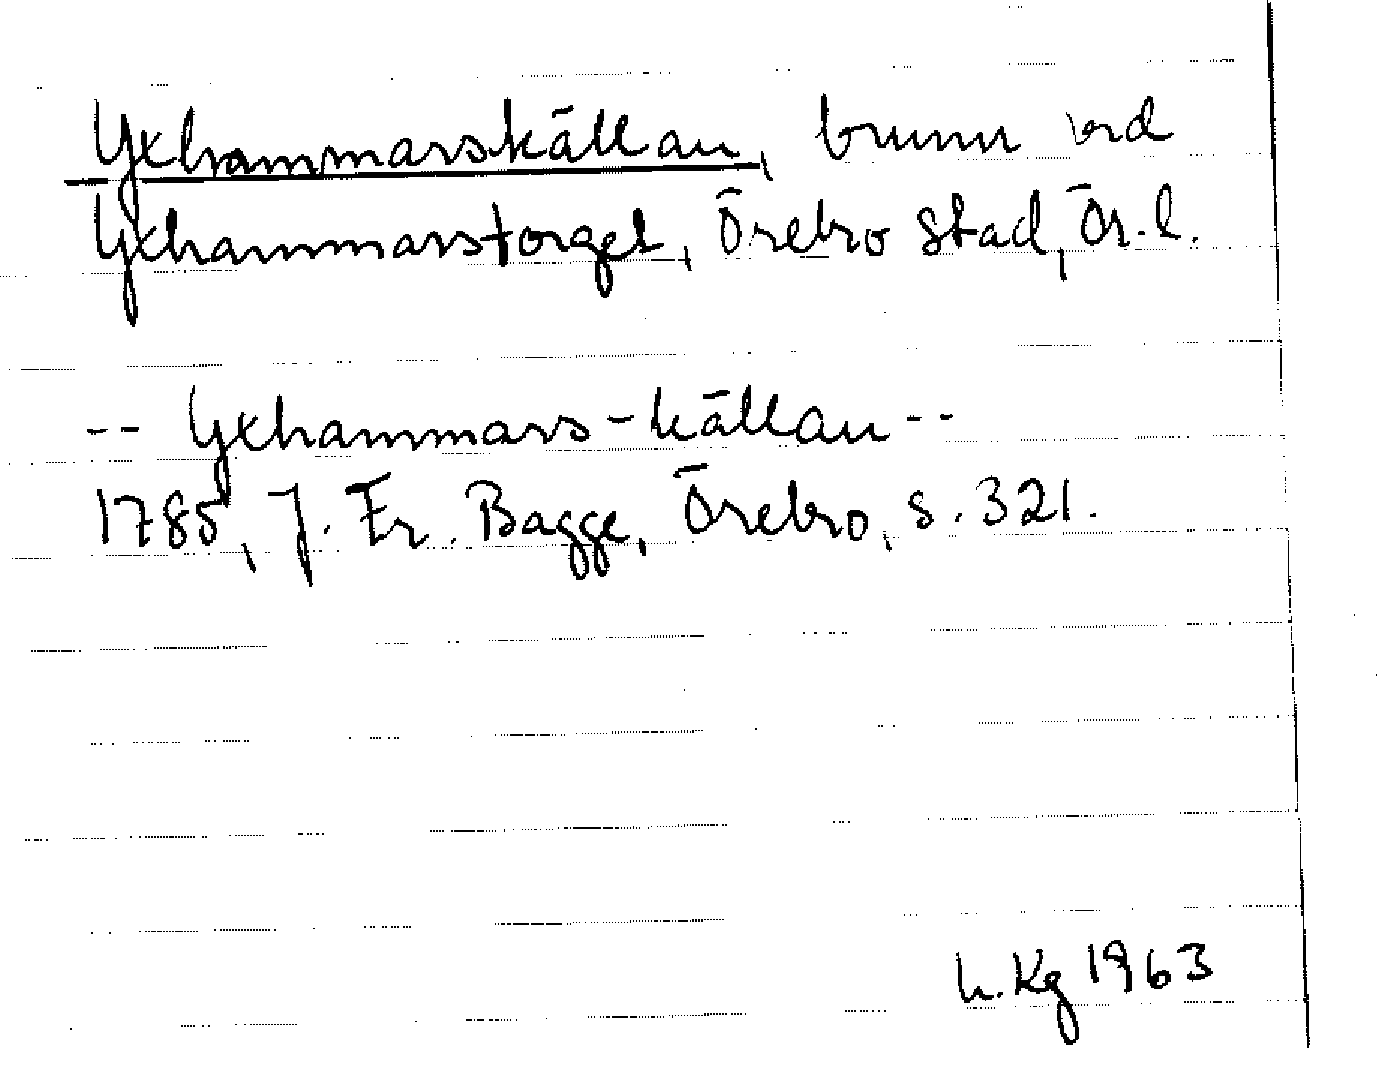 Yxhammarskällan, brunn vid
Yxhammarstorget, Örebro stad, Ör.l.
-- Yxhammars-källan --
1785, J. Fr. Bagge, Örebro, s. 321.
L.Kg 1963